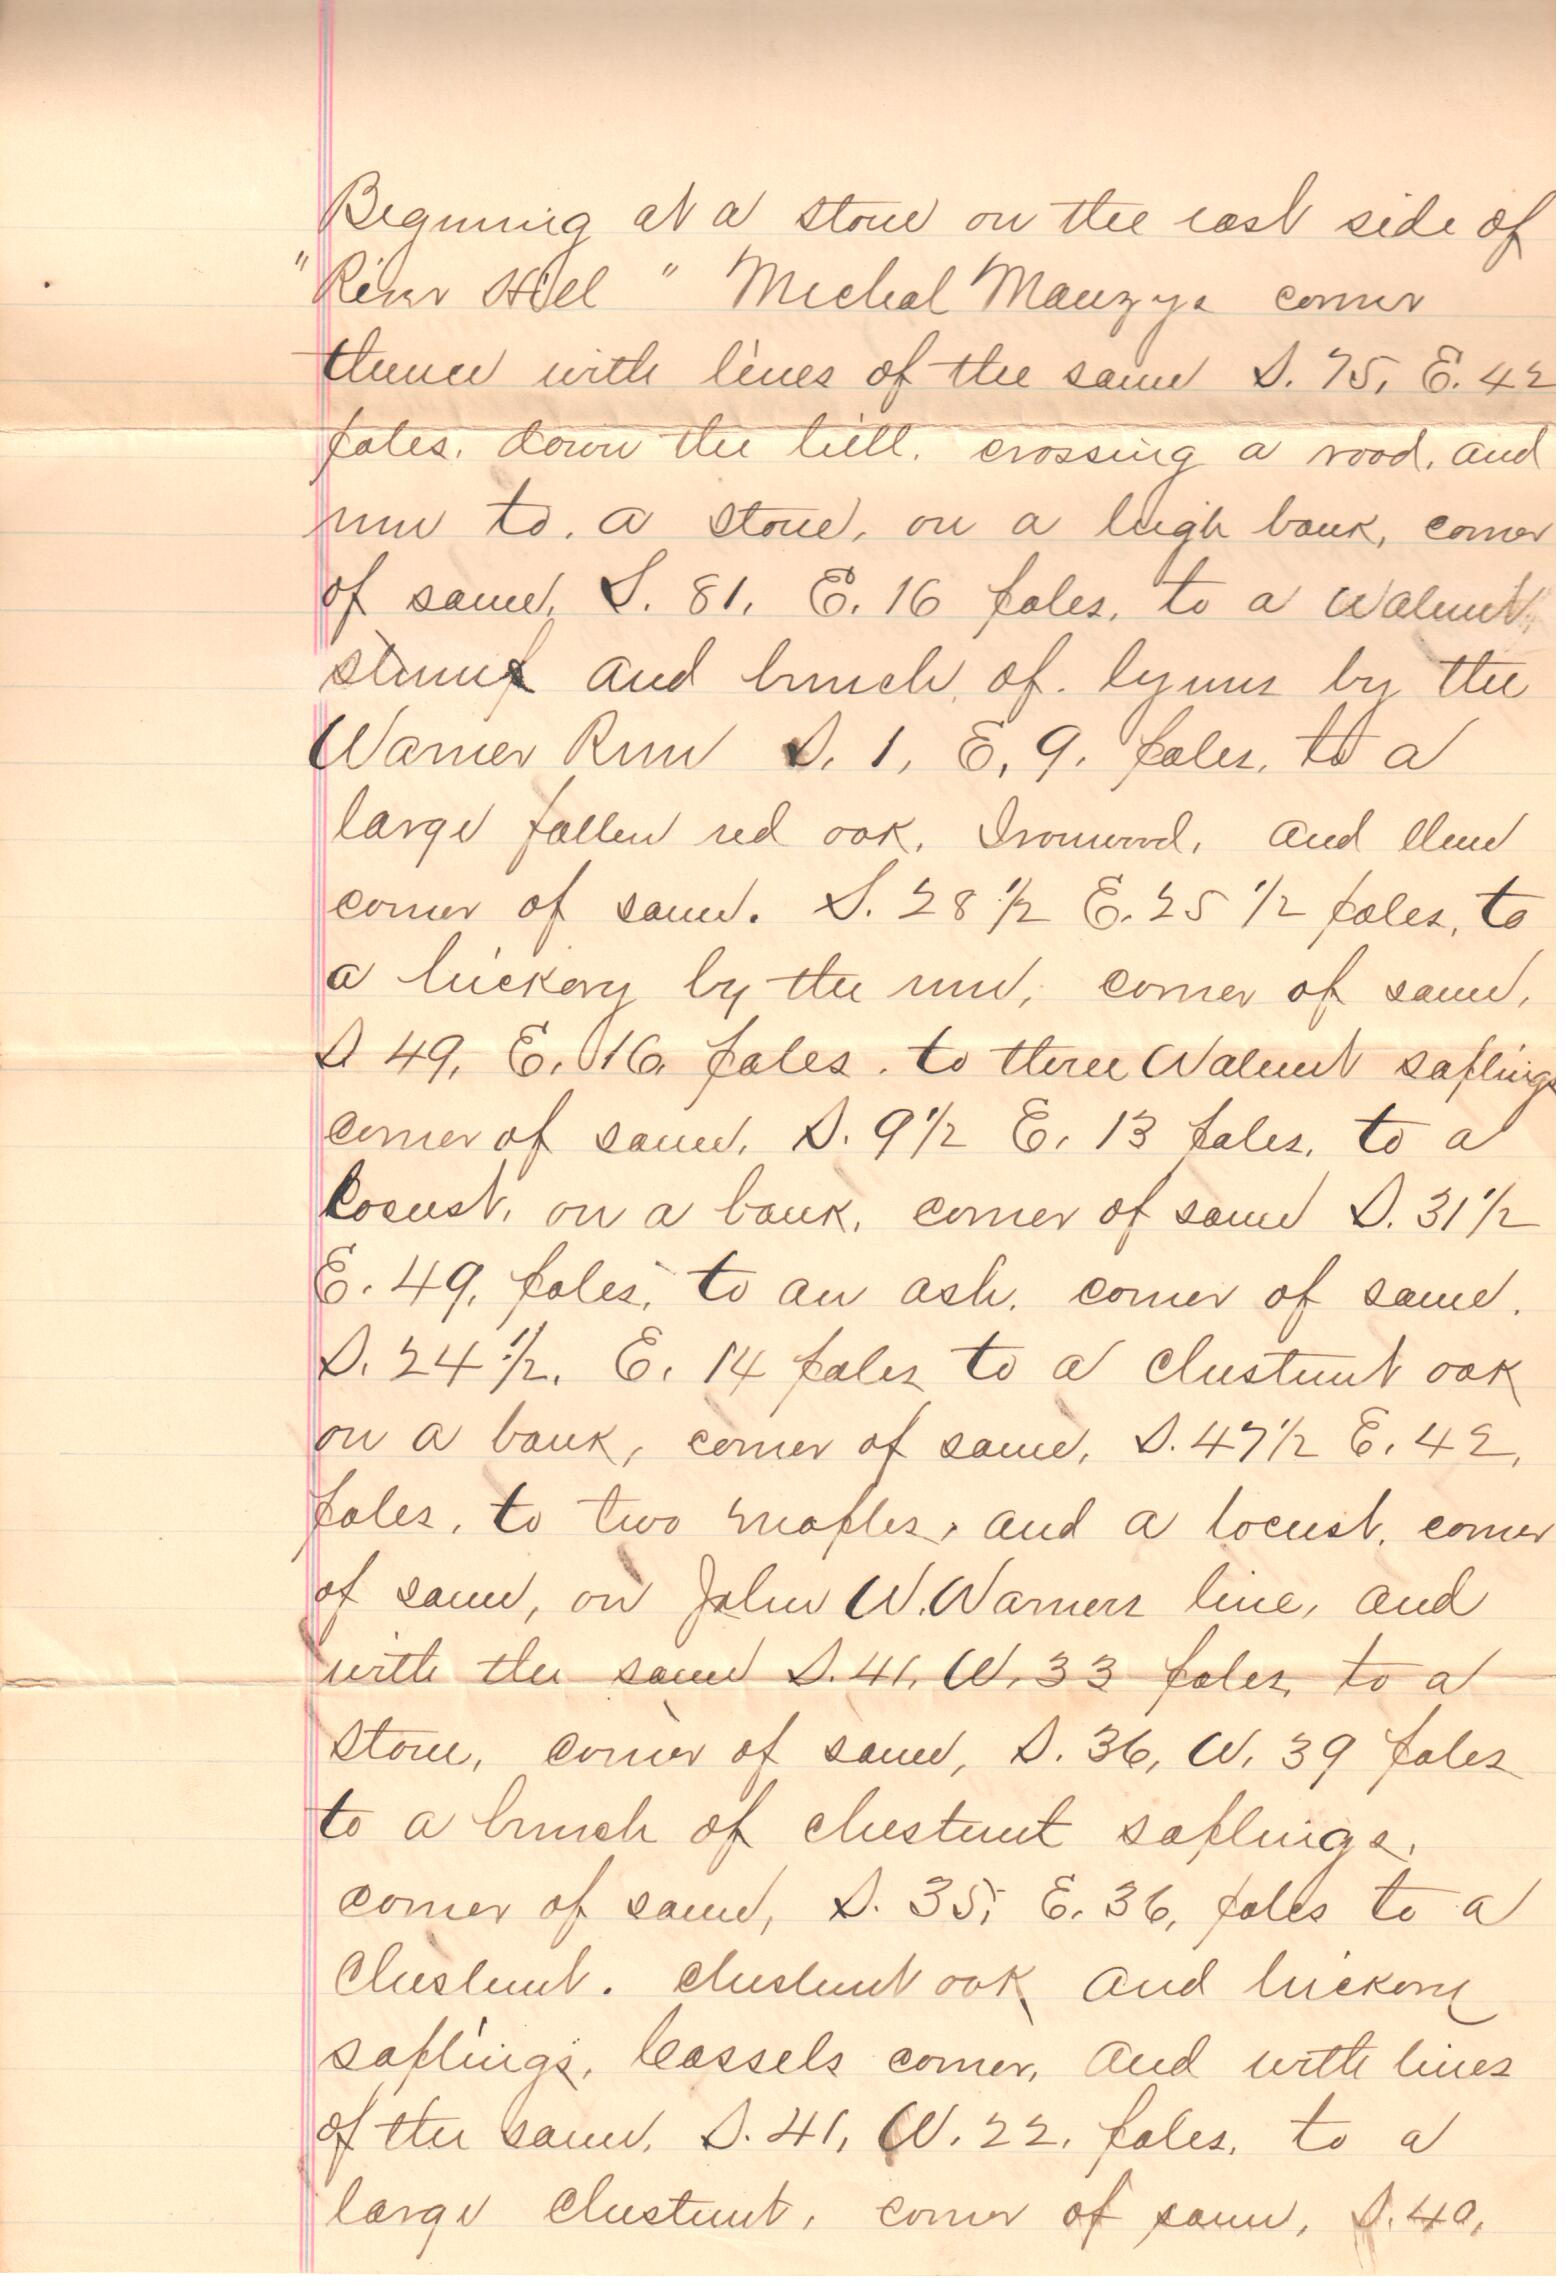 Begnning at a stone on the east side of
"River Hill" Micheal Mauzys corner
thence with lines of the same S. 75, E. 42
poles. down the hill. crossing a road, and
run to. a stone, on a high bank, corner
of same, S. 81, E. 16 poles, to a Walnut,
stump and bunch of. lynns by the
Warner Run S. 1, E, 9. poles, to a
large fallen red oak, Ironwood, and Elm
corner of same. S. 28 1/2 E. 25 1/2 poles, to
a hickory by the run, corner of same,
S 49, E. 16, poles. to three Walnut saplings
corner of same, S. 9 1/2 E. 13 poles, to a
Locust, on a bank, corner of same S. 31 1/2
E. 49, poles, to an ash, corner of same.
S. 24 1/2, E. 14 poles to a chestnut oak
on a bank, corner of same, S. 47 1/2 E. 42,
poles, to two maples, and a locust, corner
of same, on John W. Warners line, and
with the same S. 41, W. 33 poles, to a
stone, corner of same, S. 36, W. 39 poles
to a bunch of chestnut saplings,
corner of same, S. 35, E. 36, poles to a
Chestnut. chestnut oak and hickory
saplings, Cassels corner, and with lines
of the same, S. 41, W. 22, poles, to a
large chestnut, corner of same, S. 40,